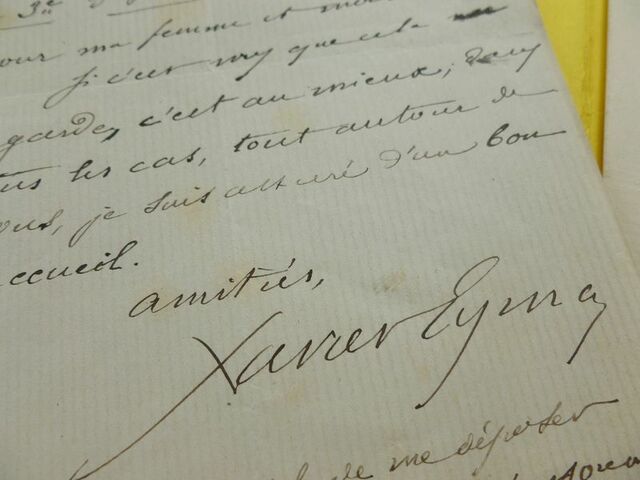 3e
our ma femme et moi
Si c'est vrai que cela
garde, c'est au mieux; dans
us les cas, tout autour de
ous, je suis assuré d'un bon
ccueil.
amitiés,
Xavier Eyma
de me déposer